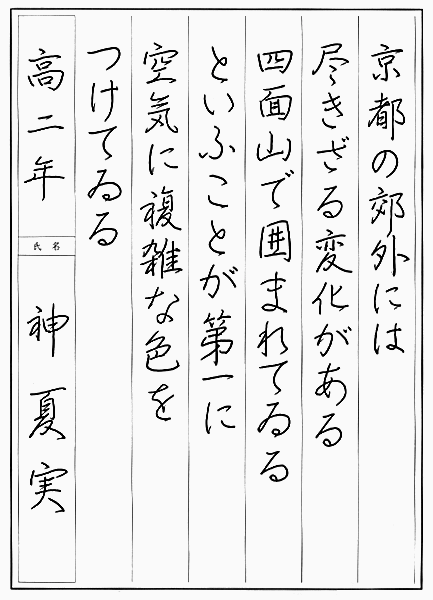 京都の郊外には
尽きざる変化がある
四面山で囲まれてゐる
といふことが第一に
空気に複雑な色を
つけてゐる
高二年
氏名
神夏実